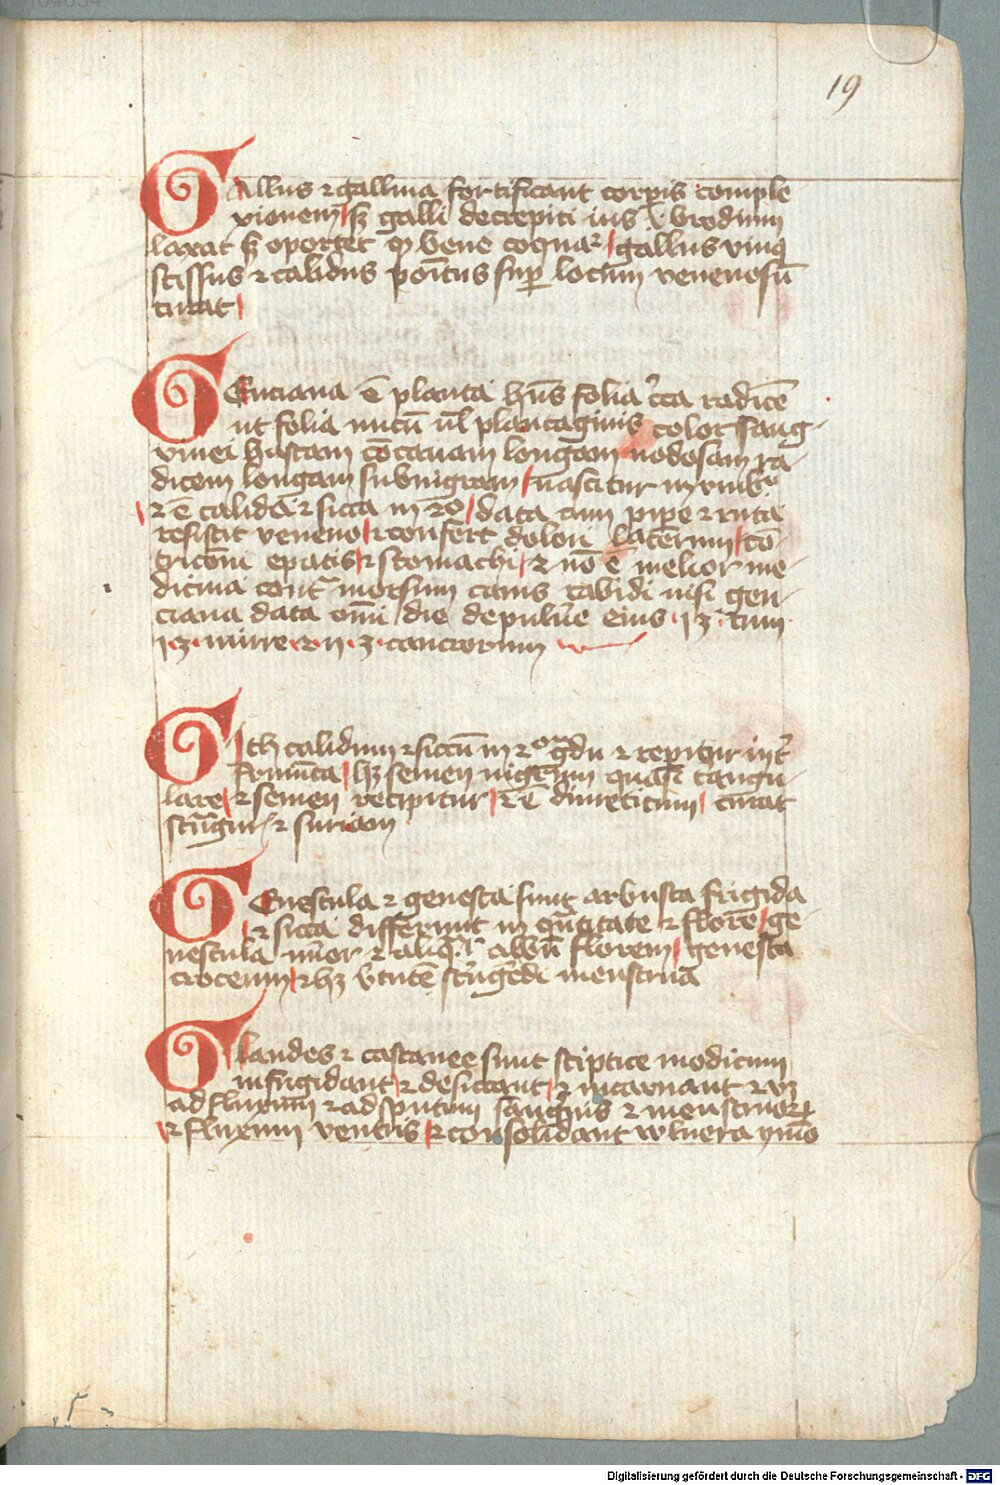 19
Gallus ⁊ gallina fortificant corpis comple
xionem sꝫ galli decrepiti ius ł brodium
laxat sꝫ oportet qͥ bene coquaꝛ gallus viuꝰ
scissus ⁊ calidus poītus suꝑ locum venenosū
curat
Genciana ē planta hn̄s folia c̄ca radicē
ut folia nucū ul̄ plantaginis color sang
uinei hastam cōcauam longam nodosam ra
dicem longam subnigram nascitur in
⁊ ē calida ⁊ sicca in 2o data cum pipe ⁊ ruta
resistit veneno ⁊ confert dolori laterum cō
epatis ⁊ stomachi ⁊ nō ē melior me
dicina cont̄ morsum canis rabidi nisi gen
ciana data omi die de puluē eius j ʒ cum
j ʒ mirre ⁊ ij ʒ cancrorum
Gith calidum ⁊ siccū in 2o gͣdu ⁊ repitur int̄
frumēta hꝫ semen nigrum quasi
lare ⁊ semen recipitur ⁊ ē diureticum curat
⁊
Genescula ⁊ genesta sunt arbusta frigida
⁊ sicca differunt in qͣntitate ⁊ florē ge
nescula mīor ⁊ albū florem genesta
croceum ⁊ hꝫ v̄tutē menstrua
Glandes ⁊ castanee sunt sciptice modicum
infrigidant ⁊ desiccant ⁊ incarnant ⁊ vꝫ
ad fluxum ⁊ ad sputum sanguīs ⁊ menstruoꝝ
⁊ fluxum ventris ⁊ consolidant wlnera ymo
Digitalisierung gefördert durch die Deutsche Forschungsgemeinschaft - DFG